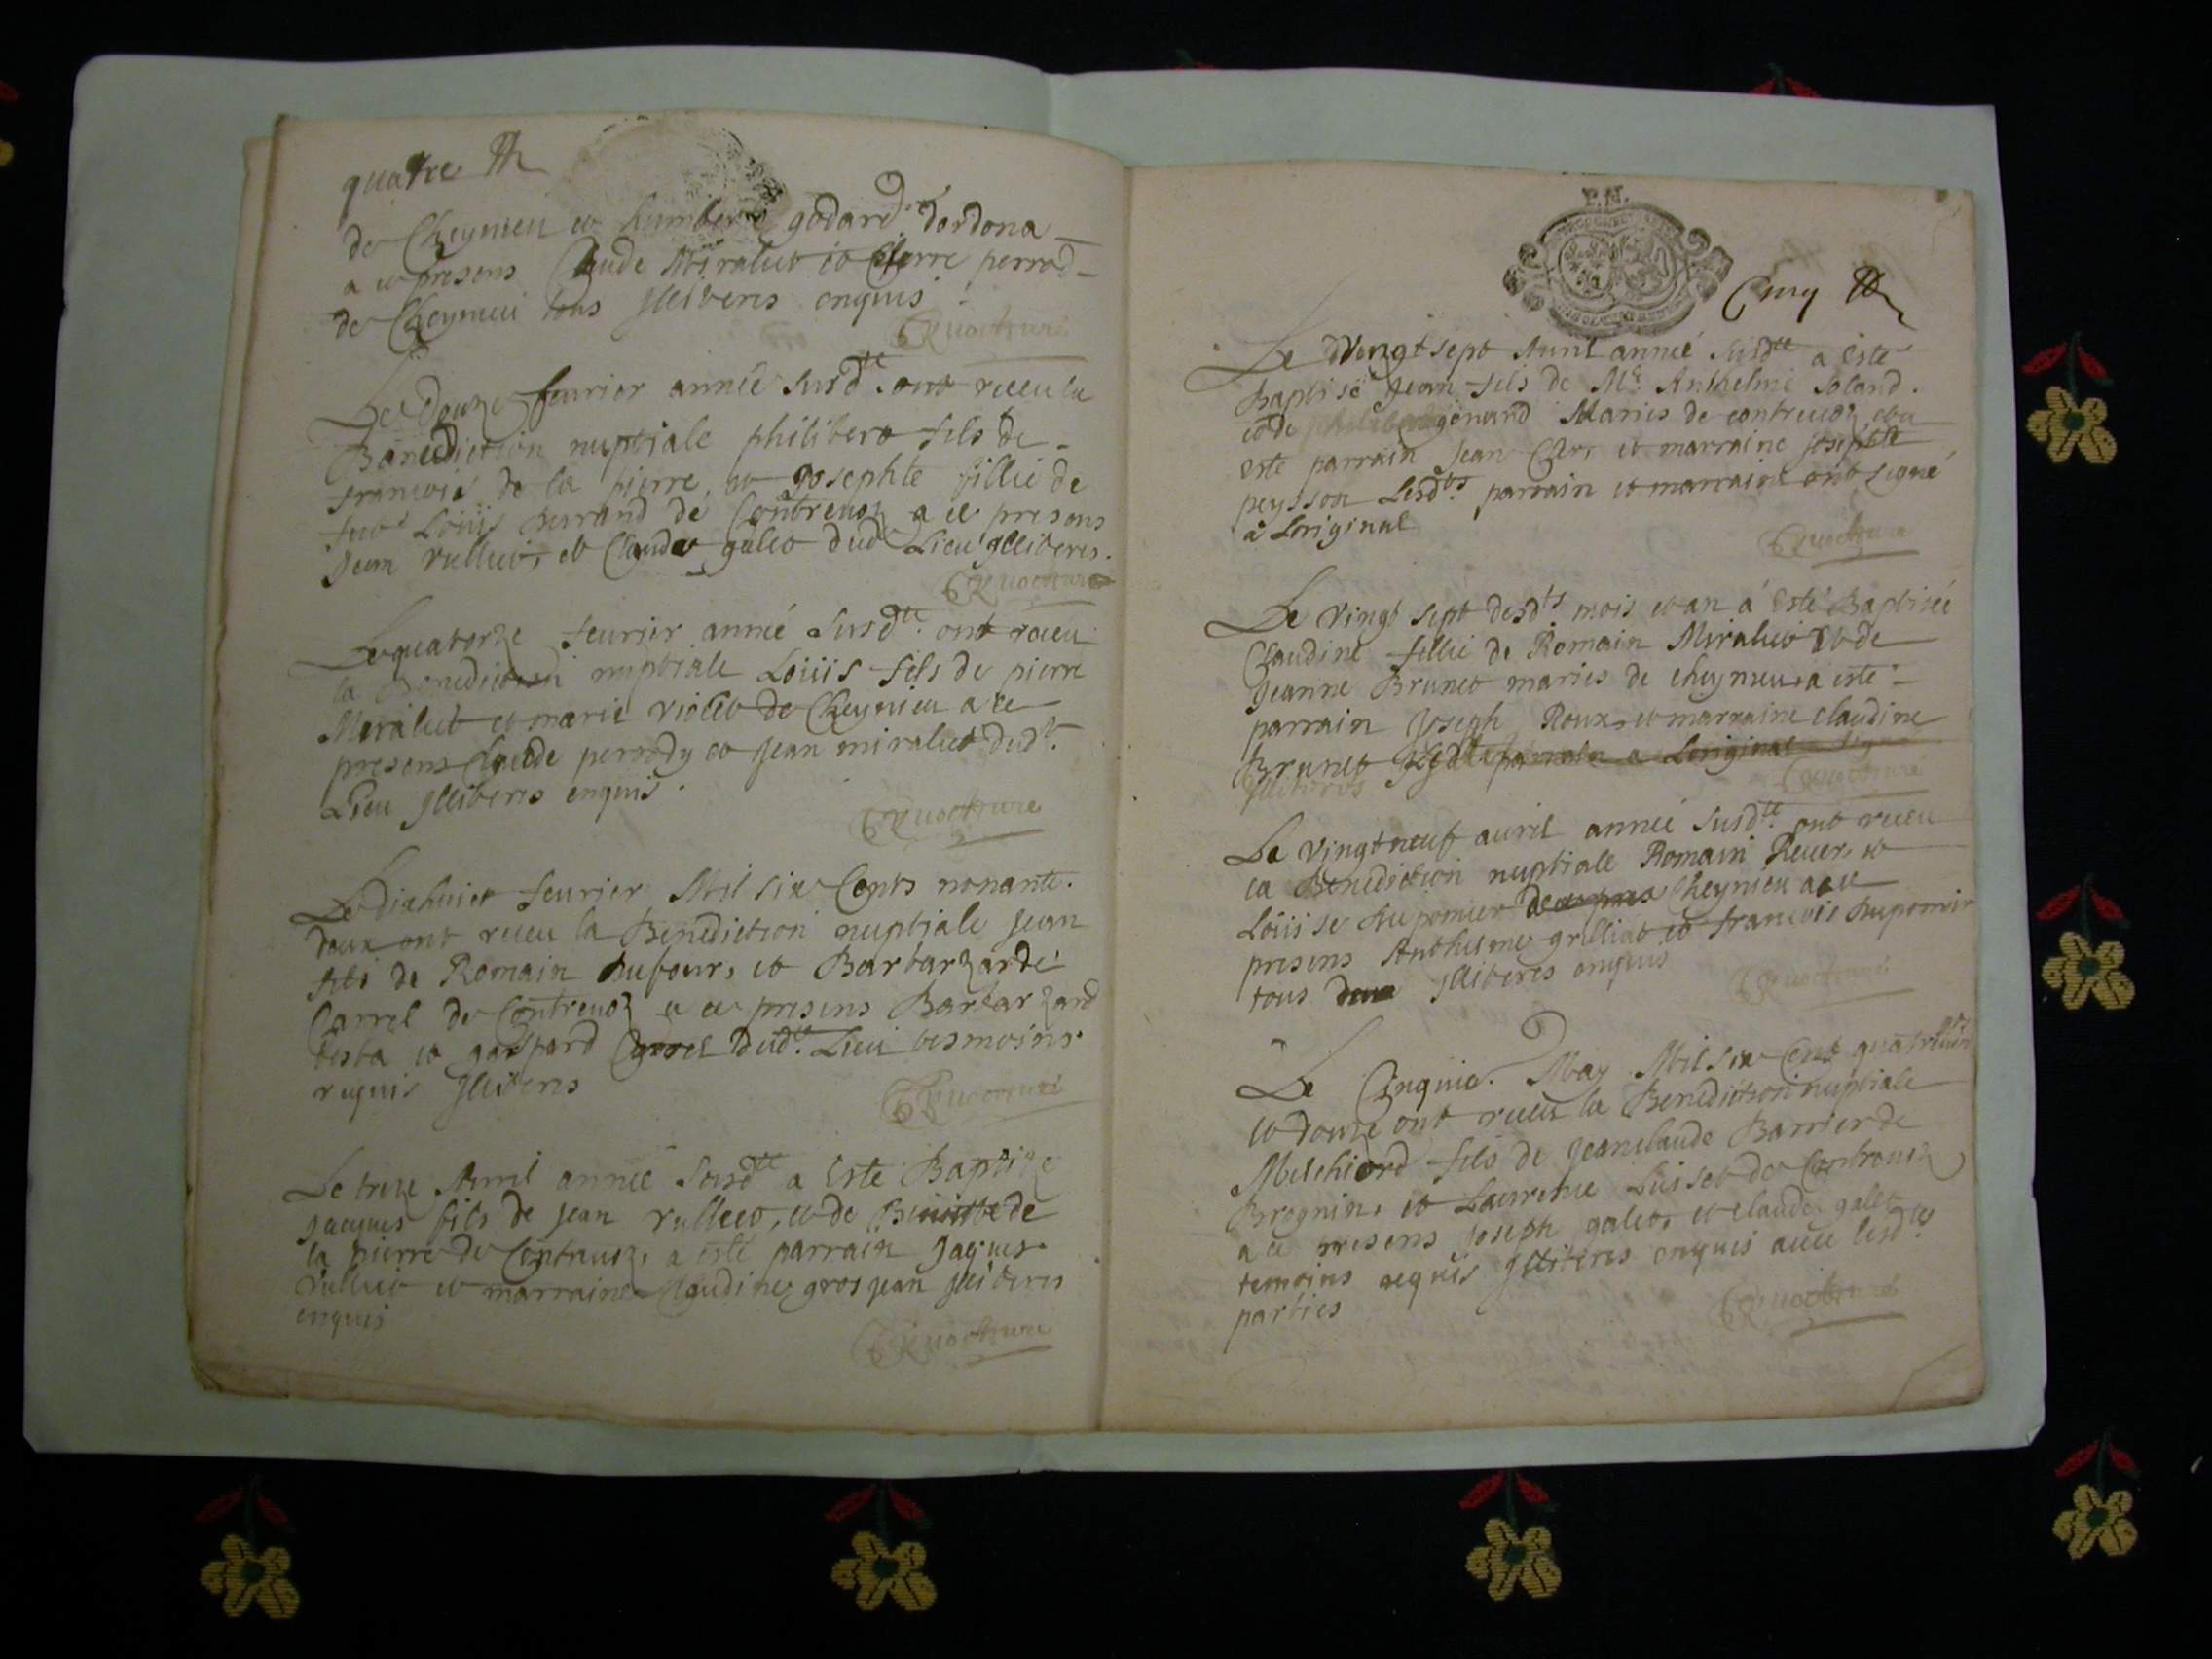 quatre
de Cheynieu et humberte godard dordona
a ce presens Claude Miraluet et Pierre perrod
de Cheynieu tous Illiteres enquis
Le Douze feurier année susdte ont receu la
Benediction nuptiale philibert fils de
francois de la pierre et Josephte fillie de
feu Loüis Durand de Contreuoz a ce presens
Jean rulliet, et Claude galet dud Lieu Illiteres.
Le quatorze feurier année susdte ont receu
la Benediction nuptiale Loüis fils de pierre
Miraluet et marie violet de Cheynieu a ce
presens Claude perrody et Jean miraluet dudt
Lieu Illiteres enquis.
Le dixhuict feurier Mil six Cents nonante
deux ont receu la Benediction nuptiale Jean
fils de Romain Dufour, et Barbarzarde
Carrel de Contreuoz a ce presens Barbarzand
testa et gaspard Carrel Dudt Lieu tesmoins
requis Illiteres
Le treze Auril année susdte a Este Baptize
Jacques fils de Jean rulliet, et de Benoitte de
la pierre de Contreuoz, a esté parrain Jaques
rulliet et marraine Claudine grosjean Illiteres
enquis
P.N.
Cinq
Le Vingt sept Auril année susdte a Esté
Baptisé Jean fils de Mr. Anthelme Soland
et de genand Maries de contreuoz, et a
este parrain Jean Cler, et marraine Josephte
peysson Lesdts parrain et marraine ont signé
a Loriginal
Le vingt sept desdts mois et an a Esté Baptiséé
Claudine fillie de Romain Miraluet et de
Jeanne Brunet maries de cheynieu, a esté
parrain Joseph Roux, et marraine Claudine
Brunet parrain a Loriginal
Illiteres
Le vingt neuf auril année susdte ont receu
la Benediction nuptiale Romain Reuer, et
Loüise Dupomier de Cheynieu a ce
presens Anthelme grilliat et francois Dupomier
tous deux Illiteres enquis
Le Cinquie. May Mil six Cent quatreuint
et douze ont receu la Benediction nuptiale
Melchiord fils de Jeanclaude Barrier de
Brognin, et Laurence Lusset de Contreuoz
a ce presens Joseph galet, et claude galet
temoins requis Illiteres enquis auec lesdtes
parties